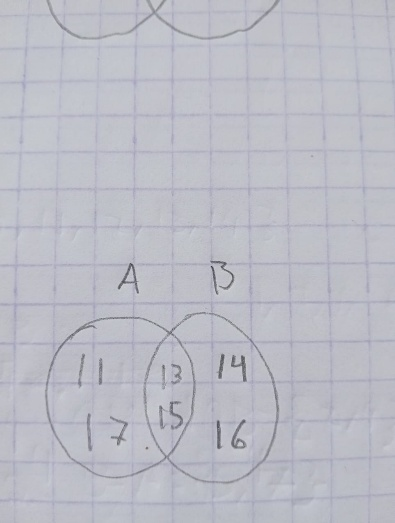 A B
11 13 14
17 15 16